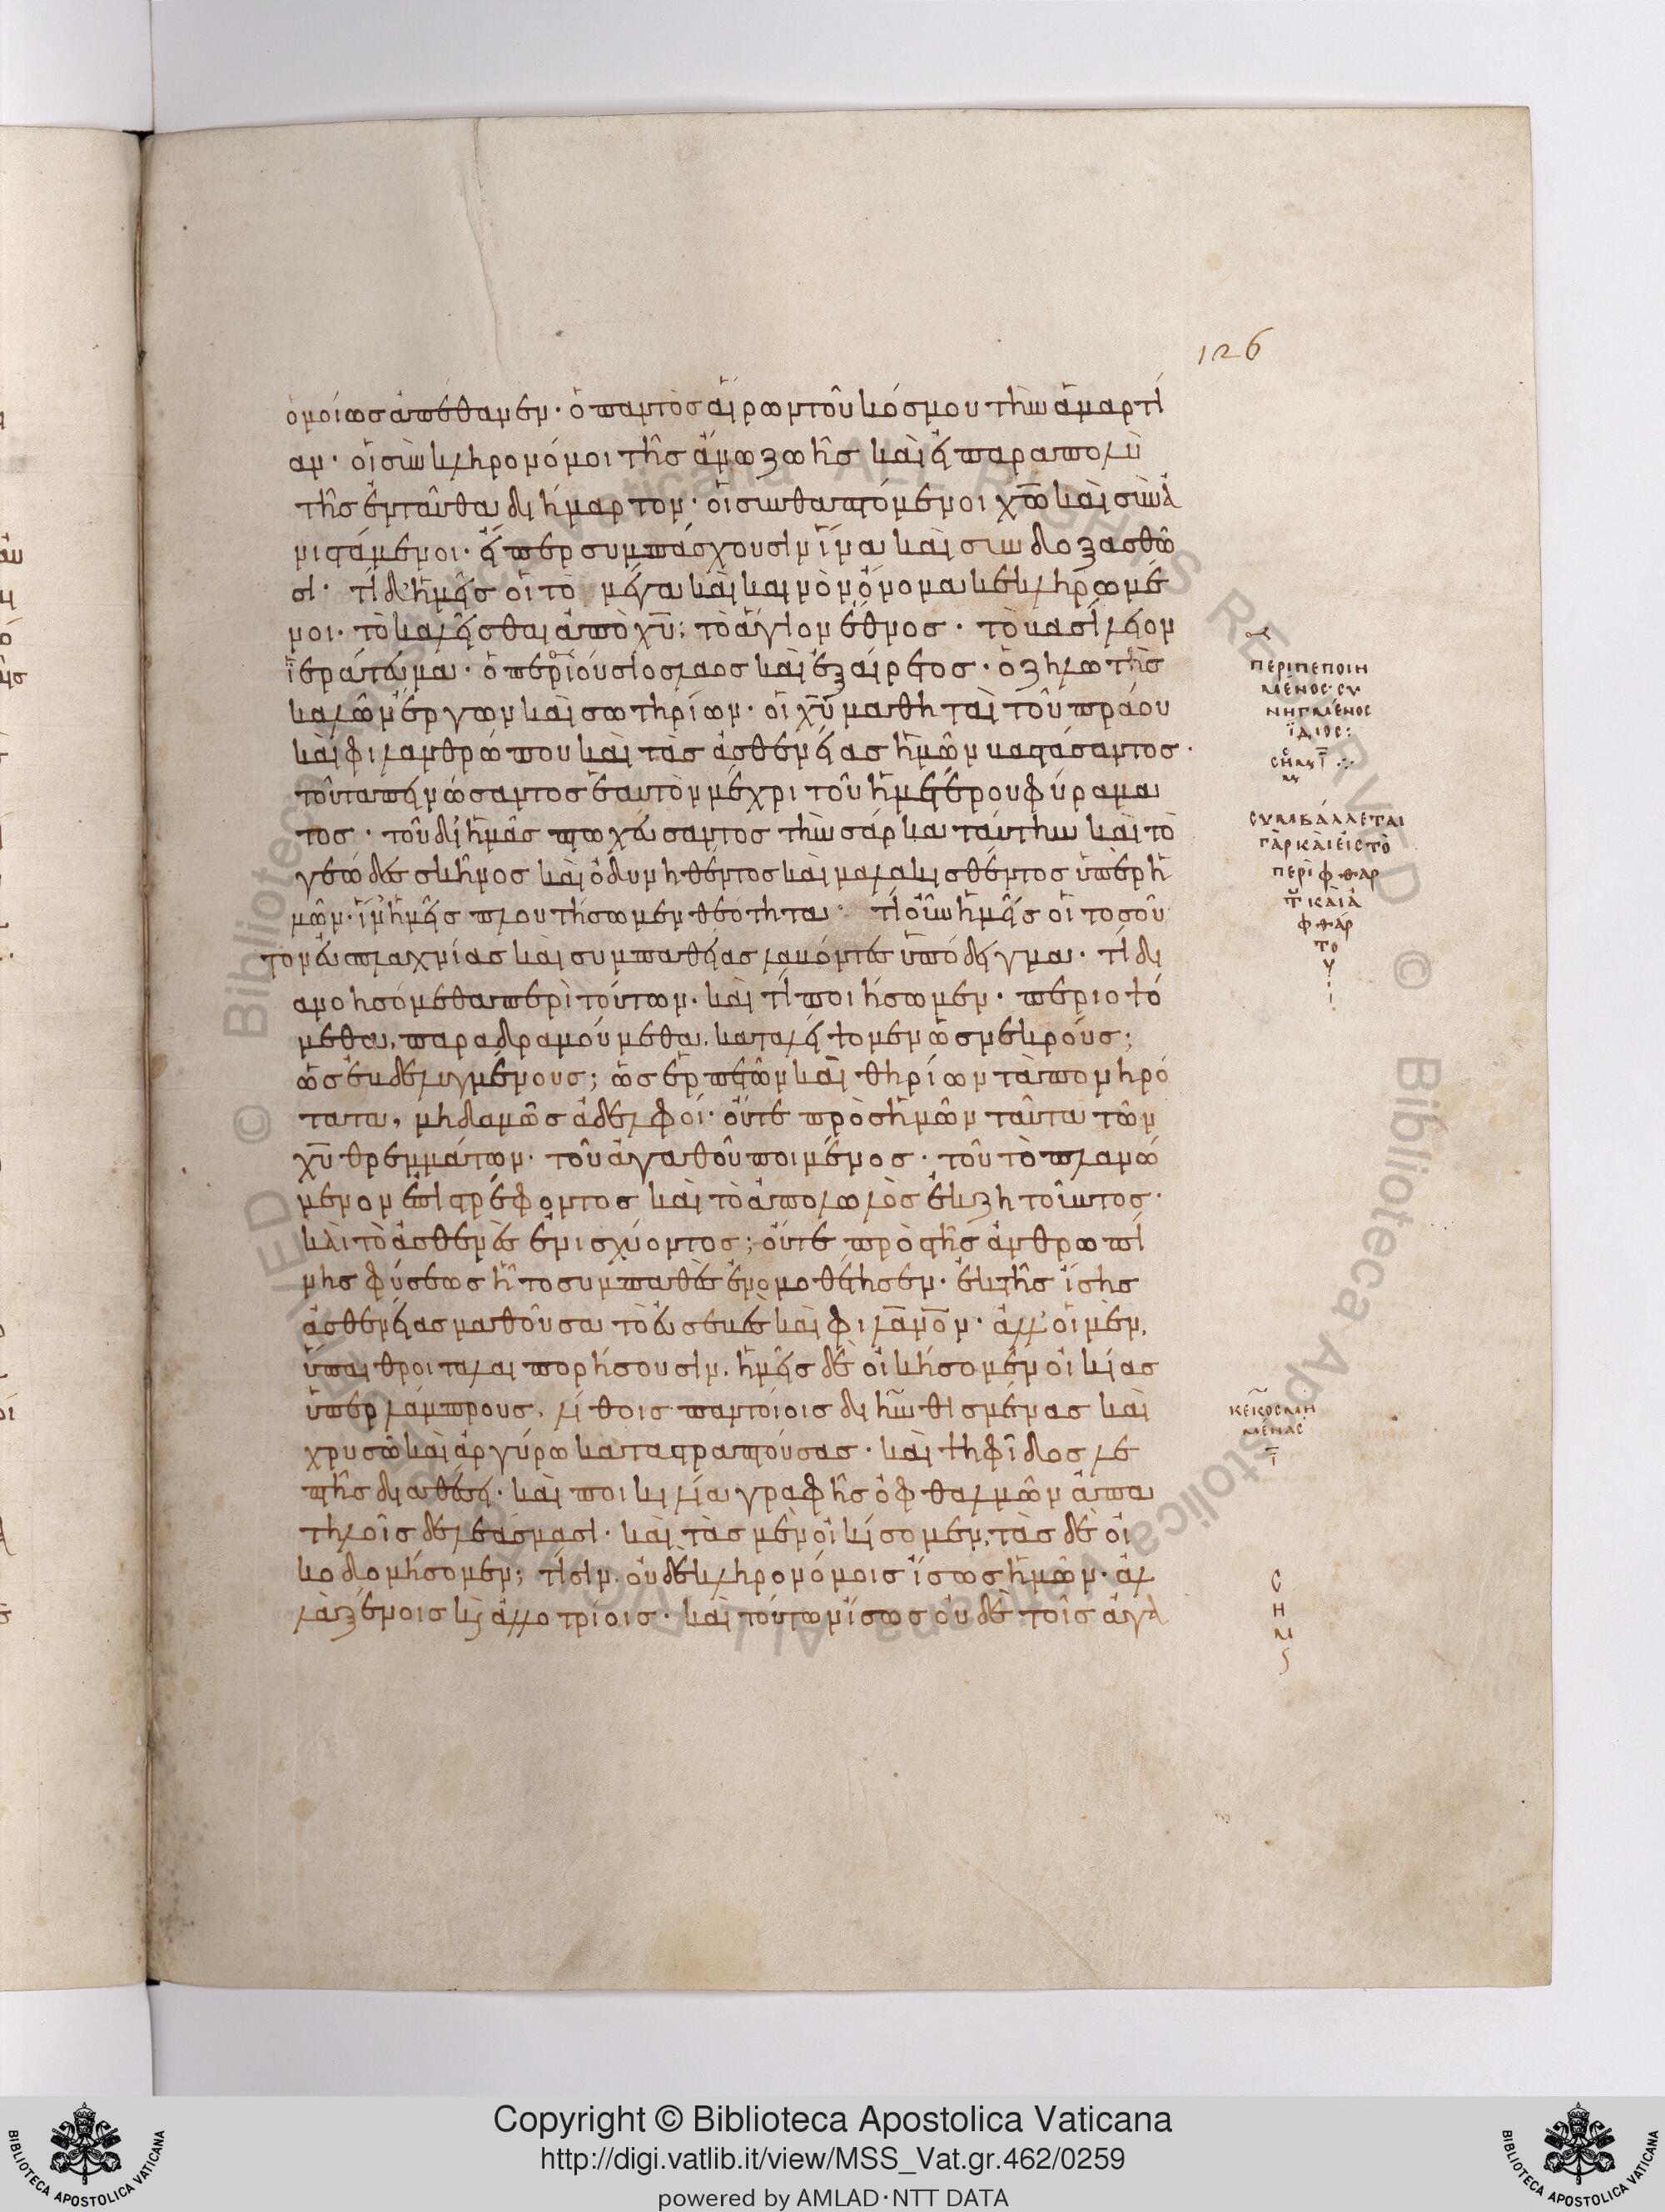 126
ὁμοίως ἀπέθανεν· ὁ παντὸς αἴρων τοῦ κόσμου τὴν ἁμαρτί
αν· οἱ συγκληρονόμοι τῆς ἄνω ζωῆς καὶ εἰ παραπολὺ
τῆς ἐνταῦθα διήμαρτον· οἱ συνθαπτόμενοι χω καὶ συνα
νιστάμενοι· εἴπερ συμπάσχουσιν ἵνα καὶ συνδοξασθῶ
σι· τί δ' ἡμεῖς οἱ τὸ μέγα καὶ καινὸν ὄνομα κεκληρωμέ
νοι· τὸ καλεῖσθαι ἀπὸ χυ· τὸ ἅγιον ἔθνος· τὸ βασίλειον
ἱεράτευμα· ὁ περιούσιος λαος καὶ ἐξαίρετος· ὁ ζηλωτὴς
καλῶν ἔργων καὶ σωτηρίων· οἱ χυ μαθηταὶ τοῦ πράου
καὶ φιλανθρώπου καὶ τὰς ἀσθενείας ἡμῶν βαστάσαντος·
τοῦ ταπεινώσαντος ἑαυτὸν μέχρι τοῦ ἡμετέρου φυράμα
τος· τοῦ δι' ἡμᾶς πτωχεύσαντος τὴν σάρκα ταύτην καὶ τὸ
γεῶδες σκῆνος καὶ ὀδυνηθέντος καὶ μαλακισθέντος ὑπὲρ ἡ
μῶν· ἵν' ἡμεῖς πλουτήσωμεν θεότητα· τί οὖν ἡμεῖς οἱ τοσοῦ
τον εὐσπλαχνίας καὶ συμπαθείας λαβόντες ὑπόδειγμα· τί δι
ανοησόμεθα περὶ τούτων· καὶ τί ποιήσωμεν· περιοψό
μεθα, παραδραμούμεθα, καταλείψομεν ὡς νεκρούς;
ὡς ἐβδελυγμένους; ὡς ἑρπετῶν καὶ θηρίων τὰ πονηρό
τατα, μηδαμῶς ἀδελφοί· οὔτε πρὸς ἡμῶν ταῦτα τῶν
χυ θρεμμάτων· τοῦ ἀγαθοῦ ποιμένος· τοῦ τὸ πλανώ
μενον ἐπιστρέφοντος καὶ τὸ ἀπολωλὸς ἐκζητοῦντος·
καὶ τὸ ἀσθενὲς ἐνισχύοντος; οὔτε πρὸ τῆς ἀνθρωπί
νης φύσεως ἣ το συμπαθὲς ἐνομοθέτησεν· ἐκ τῆς ἴσης
ἀσθενείας μαθοῦσα τὸ εὐσεβὲς καὶ φιλανον· ἀλλ' οἱ μὲν,
ὕπαιθροι ταλαιπορήσουσιν, ἡμεῖς δὲ οἰκήσομεν οἰκίας
ὑπερλάμπρους, λίθοις παντοίοις διηνθισμένας καὶ
χρυσῶ καὶ ἀργύρω καταστραπτούσας· καὶ ψηφῖδος λε
πτῆς διαθέσει· καὶ ποικιλία γραφῆς ὀφθαλμῶν ἀπα
τηλοῖς δελεάσμασι· καὶ τὰς μὲν οἰκίσομεν, τὰς δὲ οἰ
κοδομήσομεν; τίσιν, οὐδὲ κληρονόμοις ἴσως ἡμῶν· ἀλ
λὰ ξένοις κ ἀλλοτρίοις· καὶ τούτων ἴσως οὐδὲ τοῖς ἀγα
περιπεποιη
μένος· συ
νηγμένος
ἴδιος:
συμβάλλεται
γὰρ καὶ εἰς τὸ
περὶ φθαρ
τοῦ καὶ ἀ
φθάρ
το
υ
κεκοσμη
μένας
Copyright © Biblioteca Apostolica Vaticana
http://digi.vatlib.it/view/MSS_Vat.gr.462/0259
powered by AMLAD·NTT DATA
BIBLIOTECA APOSTOLICA VATICANA
BIBLIOTECA APOSTOLICA VATICANA